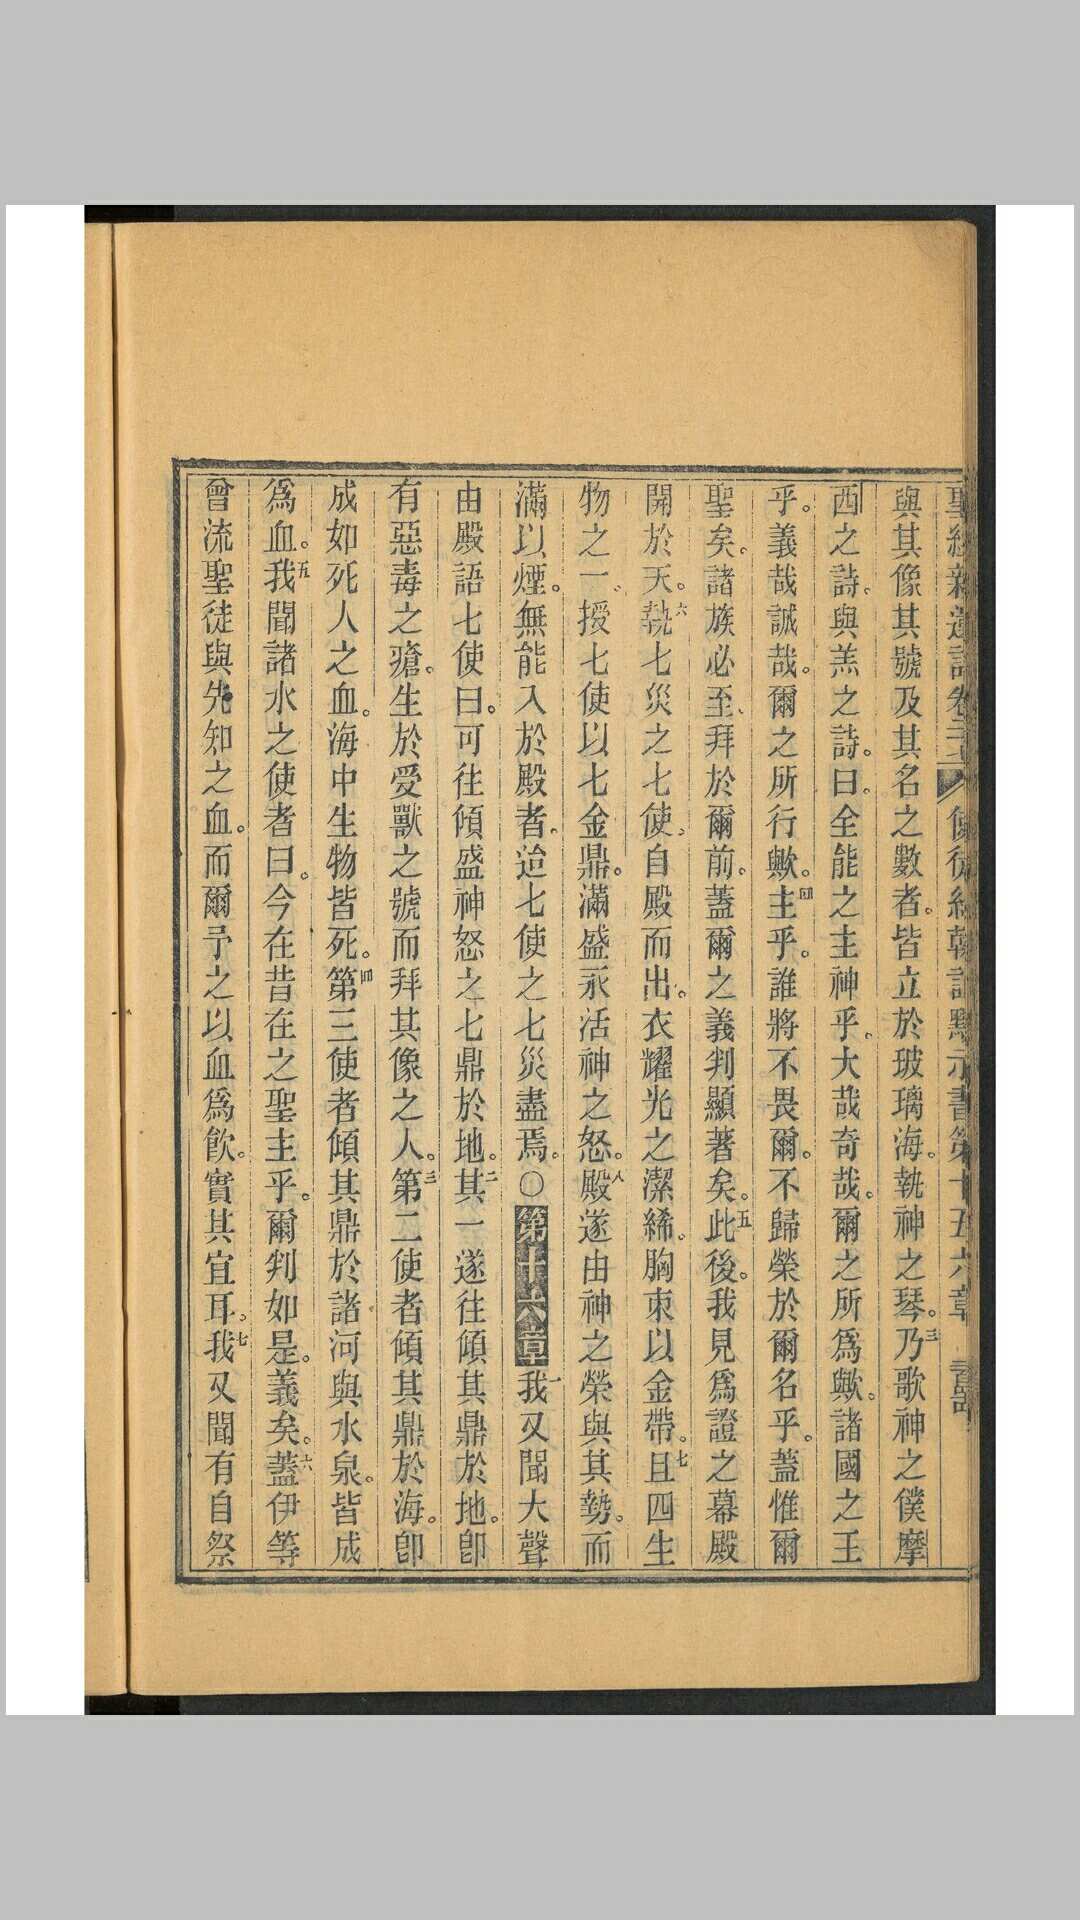 聖經新遺詔卷二十 使徒約翰語默示書第十五六章
與其像其號及其名之數者。皆立於玻璃海。執神之琴。三乃歌神之僕摩
西之詩。與羔之詩。曰。全能之主神乎。大哉奇哉。爾之所爲歟。諸國之王
乎。義哉誠哉。爾之所行歟。四主乎。誰將不畏爾。不歸榮於爾名乎。蓋惟爾
聖矣。諸族必至、拜於爾前。蓋爾之義判顯著矣。五此後。我見爲證之幕殿
開於天。六執七災之七使。自殿而出。衣耀光之潔絺。胸束以金帶。七且四生
物之一。授七使以七金鼎。滿盛永活神之怒。八殿遂由神之榮與其勢。而
滿以煙。無能入於殿者。迨七使之七災盡焉。○第十六章一我又聞大聲
由殿語七使曰。可往傾盛神怒之七鼎於地。二其一遂往傾其鼎於地。卽
有惡毒之瘡。生於受獸之號而拜其像之人。三第二使者傾其鼎於海。卽
成如死人之血。海中生物皆死。四第三使者傾其鼎於諸河與水泉。皆成
爲血。五我聞諸水之使者曰。今在昔在之聖主乎。爾判如是。義矣。六蓋伊等
曾流聖徒與先知之血。而爾予之以血爲飮。實其宜耳。七我又聞有自祭